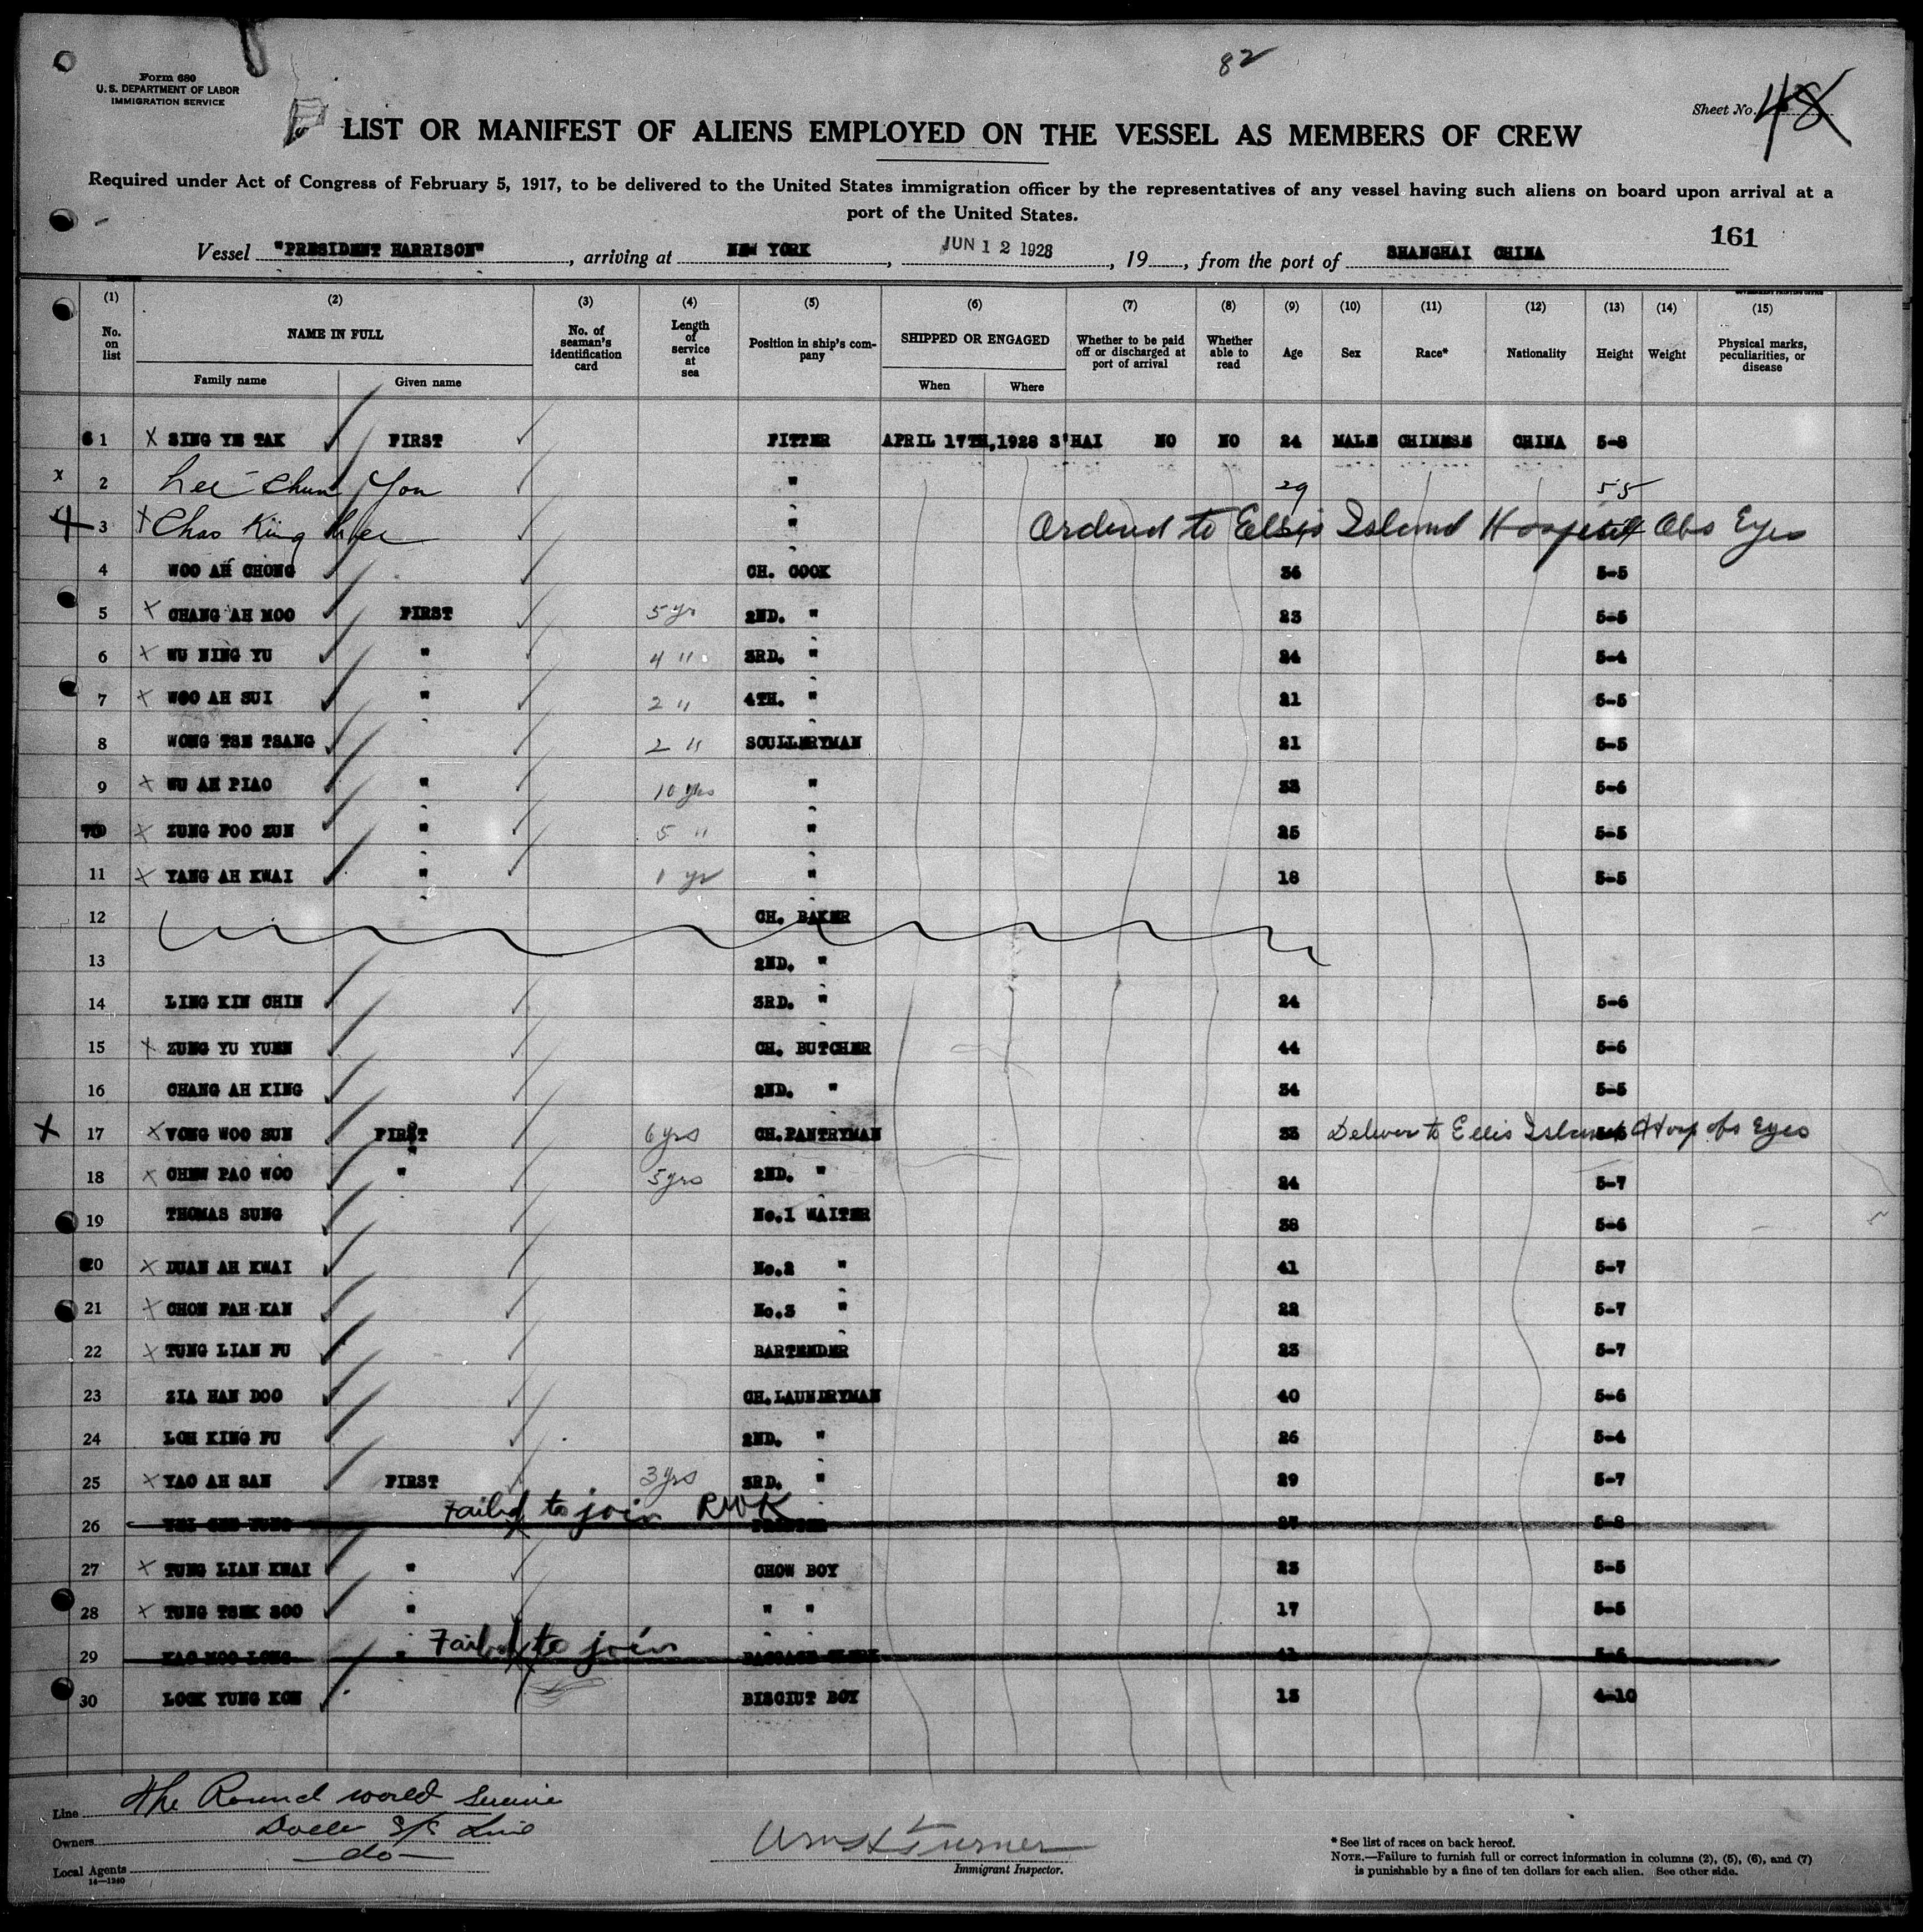 82
Form 680
U. S. DEPARTMENT OF LABOR
IMMIGRATION SERVICE
Sheet No. 48
LIST OR MANIFEST OF ALIENS EMPLOYED ON THE VESSEL AS MEMBERS OF CREW
Required under Act of Congress of February 5, 1917, to be delivered to the United States immigration officer by the representatives of any vessel having such aliens on board upon arrival at a
port of the United States.
161
Vessel "PRESIDENT HARRISON", arriving at NEW YORK, JUN 12 1928, 19, from the port of SHANGHAI CHINA
(1) (2) (3) (4) (5) (6) (7) (8) (9) (10) (11) (12) (13) (14) (15)
No. on list NAME IN FULL No. of seaman's identification card Length of service at sea Position in ship's company SHIPPED OR ENGAGED Whether to be paid off or discharged at port of arrival Whether able to read Age Sex Race* Nationality Height Weight Physical marks, peculiarities, or disease
Family name Given name When Where
1 X SING YE TAK FIRST FITTER APRIL 17TH, 1928 S'HAI NO NO 24 MALE CHINESE CHINA 5-8
x 2 Lee Chun You " 29 5 5
3 X Chao King " Ordered to Ellis Island Hospital Obs Eyes
4 WOO AH CHONG CH. COOK 36 5-5
5 X CHANG AH MOO FIRST 5 yr 2ND. " 23 5-5
6 X WU NING YU " 4 " 3RD. " 24 5-4
7 X WOO AH SUI " 2 " 4TH. " 21 5-5
8 WONG TSE TSANG 2 " SCULLERYMAN 21 5-5
9 X WU AH PIAO " 10 yrs " 5-6
10 X ZUNG FOO ZUN " 5 " " 25 5-5
11 X YANG AH KWAI " 1 yr " 18 5-5
12 CH. BAKER
13 2ND. "
14 LING KIN CHIN 3RD. " 24 5-6
15 X ZUNG YU YUEN CH. BUTCHER 44 5-6
16 CHANG AH KING 2ND. " 34 5-5
X 17 X VONG WOO SUN FIRST 6 yrs CH. PANTRYMAN 33 Deliver to Ellis Island Hosp obs Eyes
18 X CHEN PAO WOO " 5 yrs 2ND. " 24 5-7
19 THOMAS SUNG No.1 WAITER 38 5-6
20 X DUAN AH KWAI No.2 " 41 5-7
21 X CHOW PAH KAN No.3 " 22 5-7
22 X TUNG LIAN FU BARTENDER 23 5-7
23 ZIA HAN DOO CH. LAUNDRYMAN 40 5-6
24 LOH KING FU 2ND. " 26 5-4
25 X YAO AH SAN FIRST 3 yrs 3RD. " 29 5-7
26 Failed to join RWK 27 5-8
27 X TUNG LIAN KWAI " CHOW BOY 23 5-5
28 X TUNG TSEK SOO " " " 17 5-5
29 KAO MOO LONG " Failed to join BAGGAGE CLERK 41 5-6
30 LOCK YUNG KON BISCIUT BOY 15 4-10
Line The Round world Service
Owners Dollar S/S Line
Local Agents do
14—1240
Wm H Turner
Immigrant Inspector.
* See list of races on back hereof.
NOTE.—Failure to furnish full or correct information in columns (2), (5), (6), and (7)
is punishable by a fine of ten dollars for each alien. See other side.